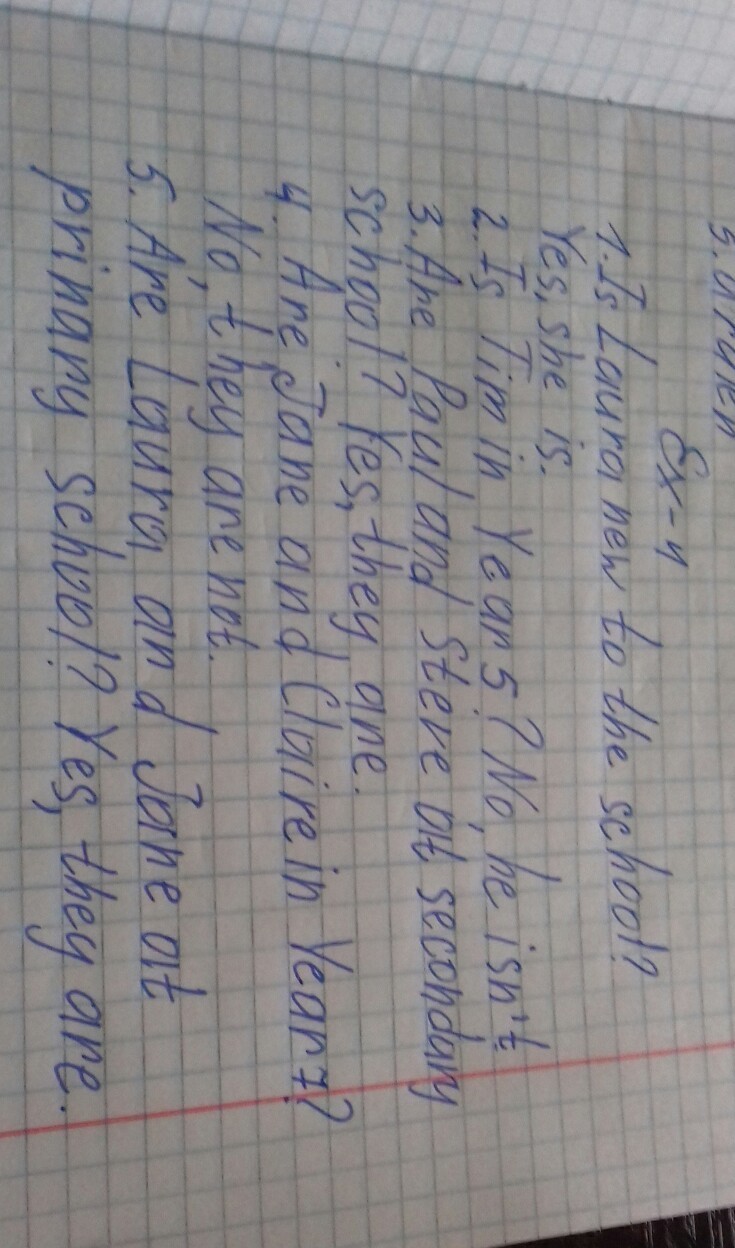 Ex-4
1. Is Laura new to the school?
Yes, she is.
2. Is Tim in Year 5? No, he isn't
3. Are Paul and Steve at secondary
school? Yes, they are.
4. Are Jane and Claire in Year 7?
No, they are not.
5. Are Laura and Jane at
primary school? Yes, they are.